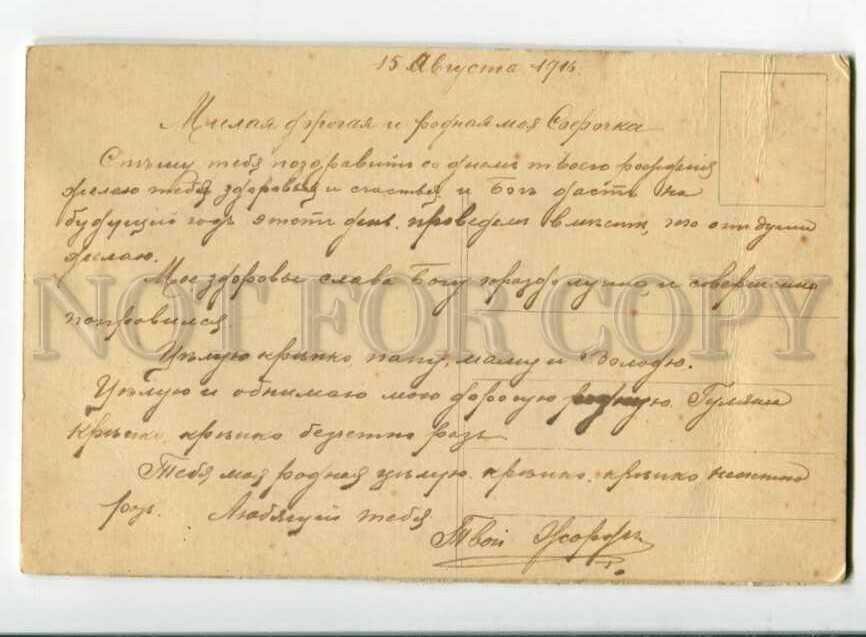 15 Августа 1916.
Милая дрогая и родная моя
Спѣшу тебя поздравить со днемъ твоего рожденія
желаю тебя здоровья и счастья и Богъ дастъ на
будущій годъ этотъ день проведемъ вмѣстѣ, что отъ души
желаю.
Мое здоровье слава Богу и совершенно
поправился.
NOT FOR COPY
Цѣлую крѣпко папу, маму и Володю.
Цѣлую и обнимаю мою дорогую родную
крѣпко, крѣпко безчетно разъ
Тебя моя родная цѣлую крѣпко, крѣпко несчетно
разъ. Любящій тебя
Твой Жоржъ